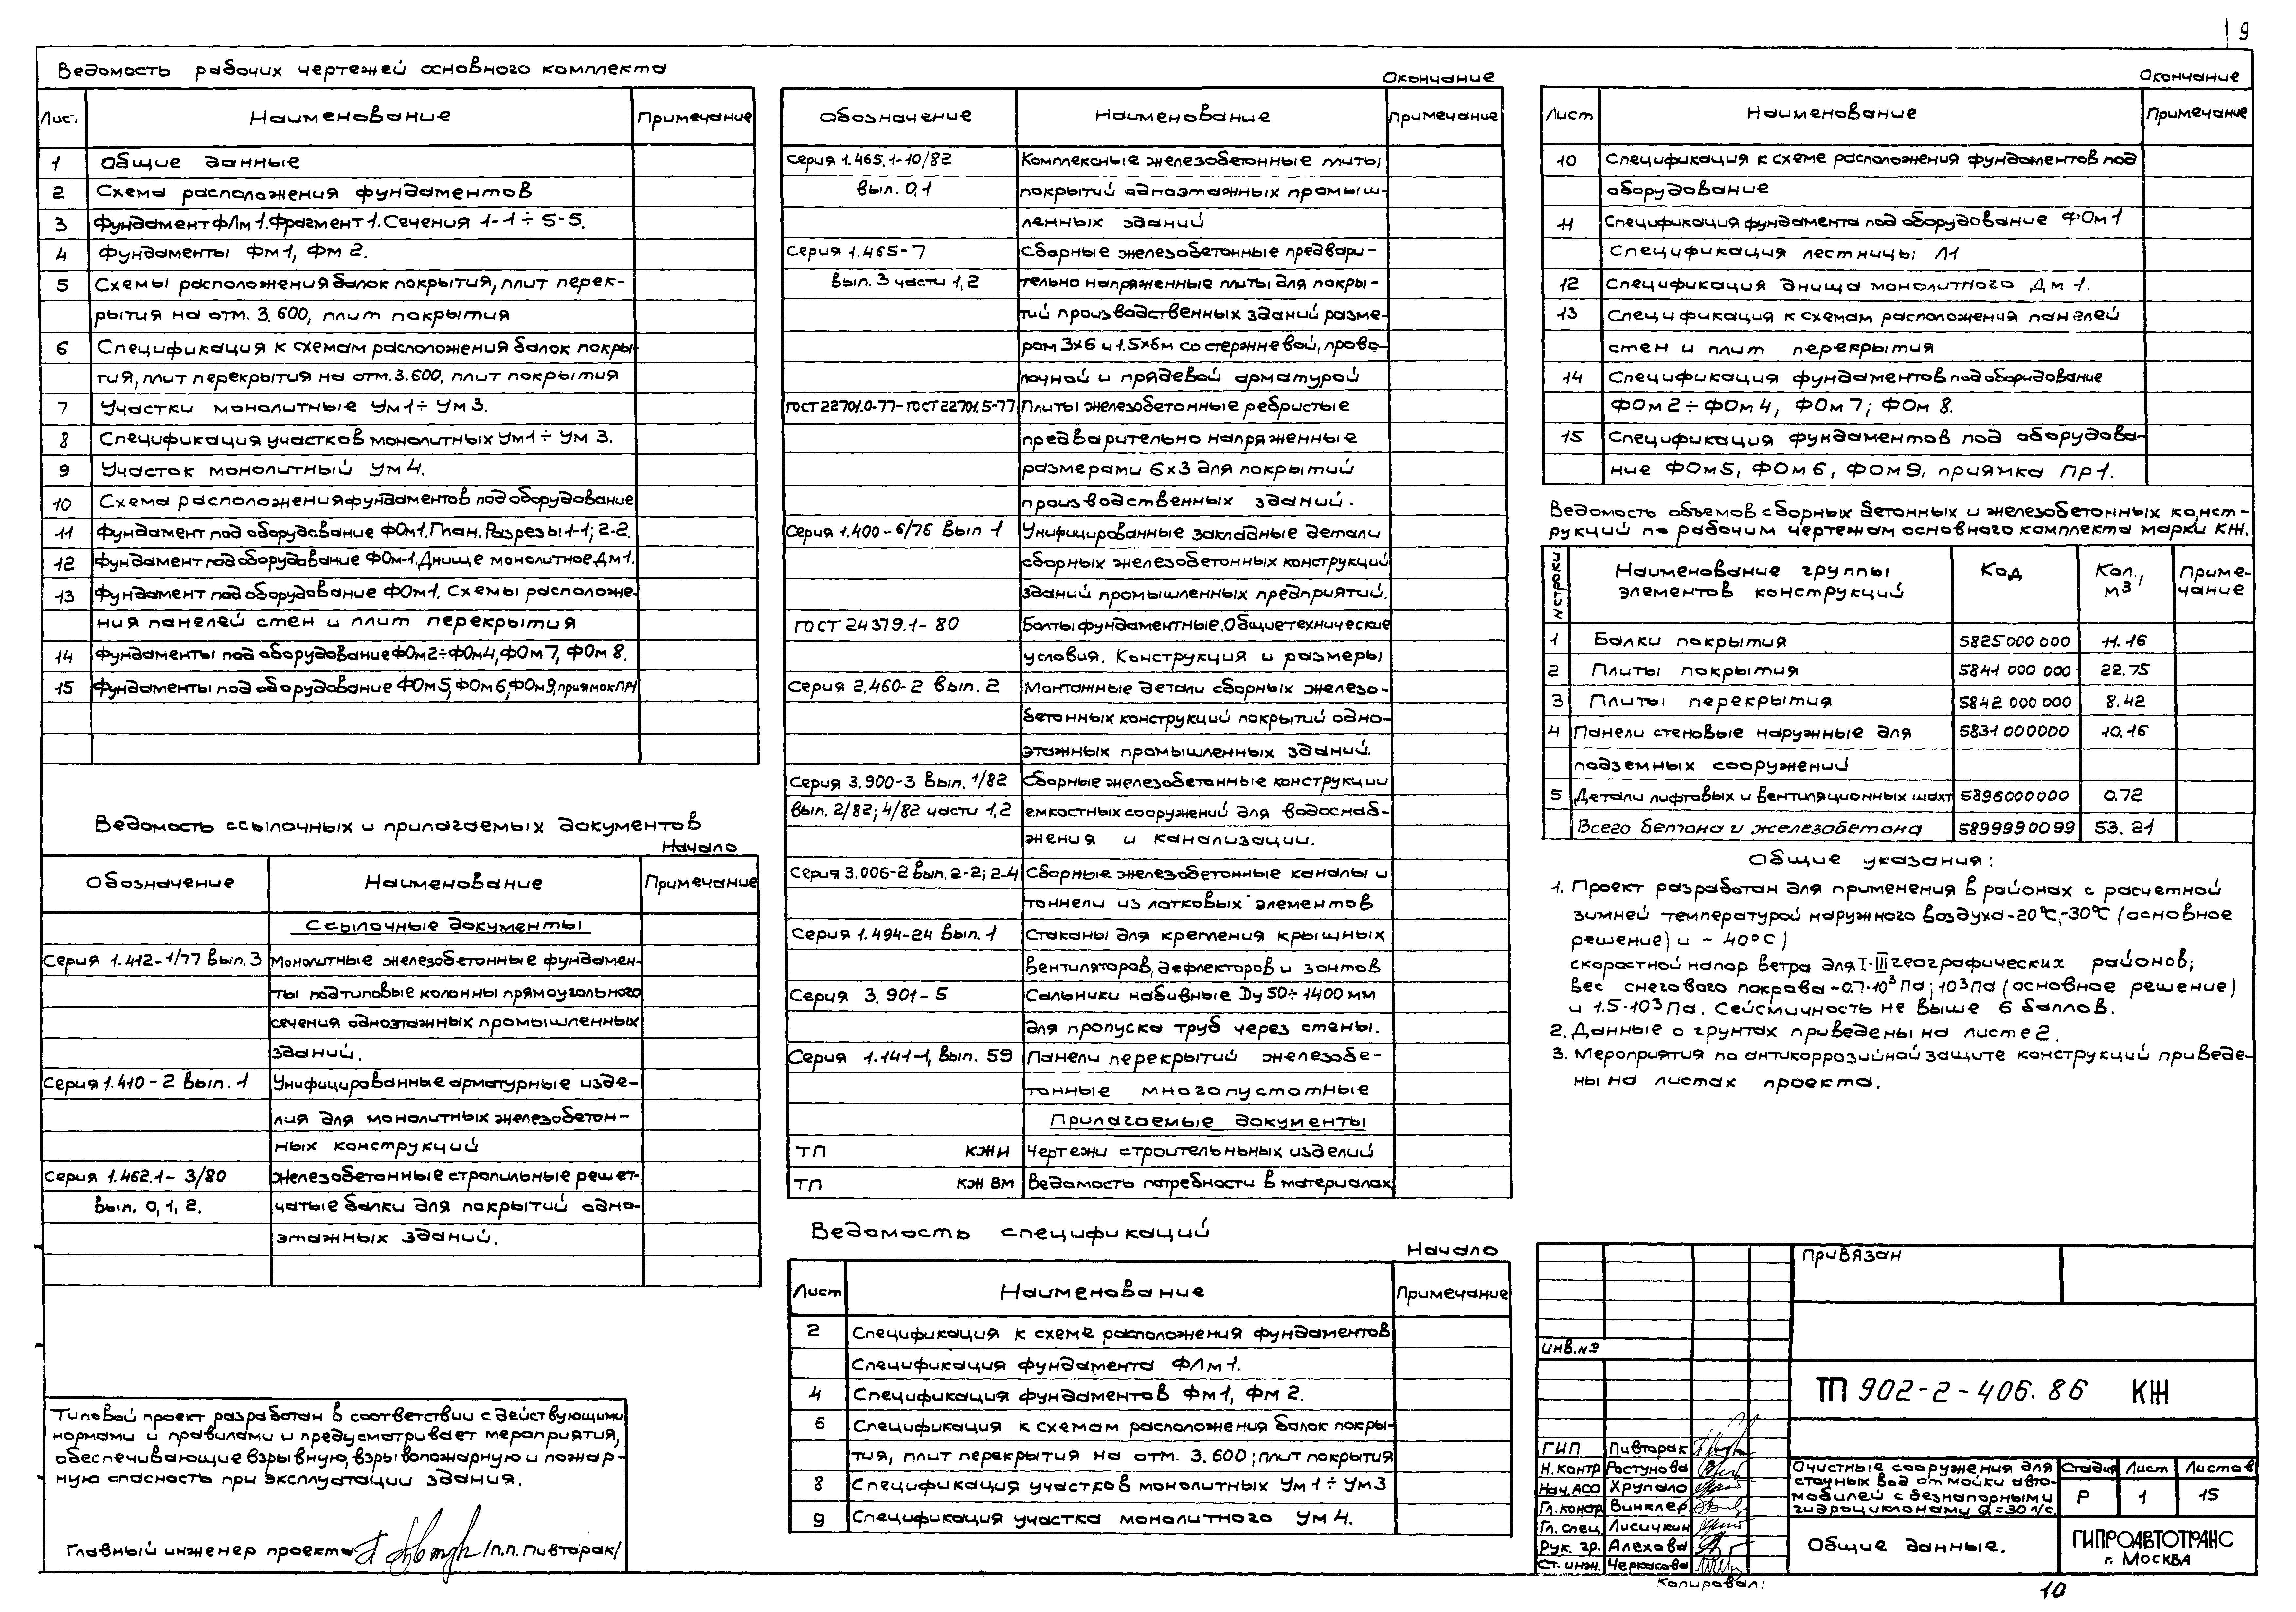 9
Ведомость рабочих чертежей основного комплекта
Лис. Наименование Примечание
1 Общие данные
2 Схема расположения фундаментов
3 Фундамент ФЛм1. Фрагмент 1. Сечения 1-1÷5-5.
4 Фундаменты Фм1, Фм2.
5 Схемы расположения балок покрытия, плит перек-
рытия на отм. 3.600, плит покрытия
6 Спецификация к схемам расположения балок покры-
тия, плит перекрытия на отм. 3.600, плит покрытия
7 Участки монолитные Ум1÷Ум3.
8 Спецификация участков монолитных Ум1÷Ум3.
9 Участок монолитный Ум4.
10 Схема расположения фундаментов под оборудование
11 Фундамент под оборудование ФОм1. План. Разрезы 1-1; 2-2.
12 Фундамент под оборудование ФОм-1. Днище монолитное Дм1.
13 Фундамент под оборудование ФОм1. Схемы расположе-
ния панелей стен и плит перекрытия
14 Фундаменты под оборудование ФОм2÷ФОм4, ФОм7, ФОм8.
15 Фундаменты под оборудование ФОм5, ФОм6, ФОм9, приямок ПР1
Ведомость ссылочных и прилагаемых документов
Начало
Обозначение Наименование Примечание
Ссылочные документы
Серия 1.412-1/77 Вып.3 Монолитные железобетонные фундамен-
ты под типовые колонны прямоугольного
сечения одноэтажных промышленных
зданий.
Серия 1.410-2 Вып.1 Унифицированные арматурные изде-
лия для монолитных железобетон-
ных конструкций
Серия 1.462.1-3/80 Железобетонные стропильные решет-
Вып. 0,1,2. чатые балки для покрытий одно-
этажных зданий.
Типовой проект разработан в соответствии с действующими
нормами и правилами и предусматривает мероприятия,
обеспечивающие взрывную, взрывопожарную и пожар-
ную опасность при эксплуатации здания.
Главный инженер проекта /П.П. Пивторак/
Окончание
Обозначение Наименование Примечание
Серия 1.465.1-10/82 Комплексные железобетонные плиты
вып. 0,1 покрытий одноэтажных промыш-
ленных зданий
Серия 1.465-7 Сборные железобетонные предвари-
Вып. 3 части 1,2 тельно напряженные плиты для покры-
тий производственных зданий разме-
ром 3х6 и 1.5х6м со стержневой, прово-
лочной и прядевой арматурой
ГОСТ 22701.0-77-ГОСТ 22701.5-77 Плиты железобетонные ребристые
предварительно напряженные
размерами 6х3 для покрытий
производственных зданий.
Серия 1.400-6/76 Вып 1 Унифицированные закладные детали
сборных железобетонных конструкций
зданий промышленных предприятий.
ГОСТ 24379.1-80 Болты фундаментные. Общие технические
условия. Конструкция и размеры
Серия 2.460-2 Вып. 2 Монтажные детали сборных железо-
бетонных конструкций покрытий одно-
этажных промышленных зданий.
Серия 3.900-3 Вып. 1/82 Сборные железобетонные конструкции
вып. 2/82; 4/82 части 1,2 емкостных сооружений для водоснаб-
жения и канализации.
Серия 3.006-2 Вып. 2-2; 2-4 Сборные железобетонные каналы и
тоннели из лотковых элементов
Серия 1.494-24 Вып. 1 Стаканы для крепления крышных
вентиляторов, дефлекторов и зонтов
Серия 3.901-5 Сальники набивные Dy 50÷1400 мм
для пропуска труб через стены.
Серия 1.141-1, Вып. 59 Панели перекрытий железобе-
тонные многопустотные
Прилагаемые документы
ТП КЖИ Чертежи строительньных изделий
ТП КЖ ВМ Ведомость потребности в материалах
Ведомость спецификаций
Начало
Лист Наименование Примечание
2 Спецификация к схеме расположения фундаментов
Спецификация фундамента ФЛм1.
4 Спецификация фундаментов Фм1, Фм2.
6 Спецификация к схемам расположения балок покры-
тия, плит перекрытия на отм. 3.600; плит покрытия
8 Спецификация участков монолитных Ум1÷Ум3
9 Спецификация участка монолитного Ум4.
Окончание
Лист Наименование Примечание
10 Спецификация к схеме расположения фундаментов под
оборудование
11 Спецификация фундамента под оборудование ФОм1
Спецификация лестницы Л1
12 Спецификация днища монолитного Дм1.
13 Спецификация к схемам расположения панелей
стен и плит перекрытия
14 Спецификация фундаментов под оборудование
ФОм2÷ФОм4, ФОм7; ФОм8.
15 Спецификация фундаментов под оборудова-
ние ФОм5, ФОм6, ФОм9, приямка Пр1.
Ведомость объемов сборных бетонных и железобетонных конст-
рукций по рабочим чертежам основного комплекта марки КЖ.
N строки Наименование группы элементов конструкций Код Кол., м³ Приме-чание
1 Балки покрытия 5825 000 000 11.16
2 Плиты покрытия 5841 000 000 22.75
3 Плиты перекрытия 5842 000 000 8.42
4 Панели стеновые наружные для 5831 000000 10.16
подземных сооружений
5 Детали лифтовых и вентиляционных шахт 5896000000 0.72
Всего бетона и железобетона 5899990099 53.21
Общие указания:
1. Проект разработан для применения в районах с расчетной
зимней температурой наружного воздуха -20°С,-30°С (основное
решение) и -40°С)
скоростной напор ветра для I-III географических районов;
Вес снегового покрова -0.7·10³Па; 10³Па (основное решение)
и 1.5·10³Па. Сейсмичность не выше 6 баллов.
2. Данные о грунтах приведены на листе 2.
3. Мероприятия по антикоррозийной защите конструкций приведе-
ны на листах проекта.
Привязан
Инв.№
ТП 902-2-406.86 КЖ
ГИП Пивторак
Н.контр Ростунова
Нач.АСО Хрупало
Гл.констр Винклер
Гл.спец. Лисичкин
Рук. гр. Алехова
Ст.инж. Черкасова
Очистные сооружения для
сточных вод от мойки авто-
мобилей с безнапорными
гидроциклонами Q=30 л/с.
Стадия Лист Листов
Р 1 15
Общие данные.
ГИПРОАВТОТРАНС
г. Москва
Копировал:
10